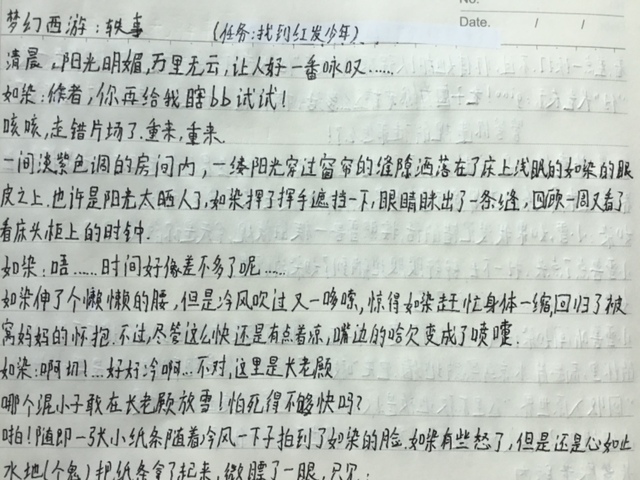 No.
Date. / /
梦幻西游：轶事 （任务：找到红发少年）
清晨，阳光明媚，万里无云，让人好一番咏叹……
如染：作者，你再给我瞎bb试试！
咳咳，走错片场了.重来，重来.
一间淡紫色调的房间内，一缕阳光穿过窗帘的缝隙洒落在了床上浅眠的如染的眼
皮之上.也许是阳光太晒人了，如染挥了挥手遮挡一下，眼睛眯出了一条缝，回顾一周又看了
看床头柜上的时钟.
如染：唔……时间好像差不多了呢……
如染伸了个懒懒的腰，但是冷风吹过又一哆嗦，惊得如染赶忙身体一缩，回归了被
窝妈妈的怀抱.不过，尽管这么快还是有点着凉，嘴边的哈欠变成了喷嚏.
如染：啊切！…好好冷啊…不对，这里是长老殿
哪个混小子敢在长老殿放雪！怕死得不够快吗？
啪！随即一张小纸条随着冷风一下子拍到了如染的脸.如染有些怒了，但是还是心如止
水地(个鬼)把纸条拿了起来，微瞟了一眼，只见：